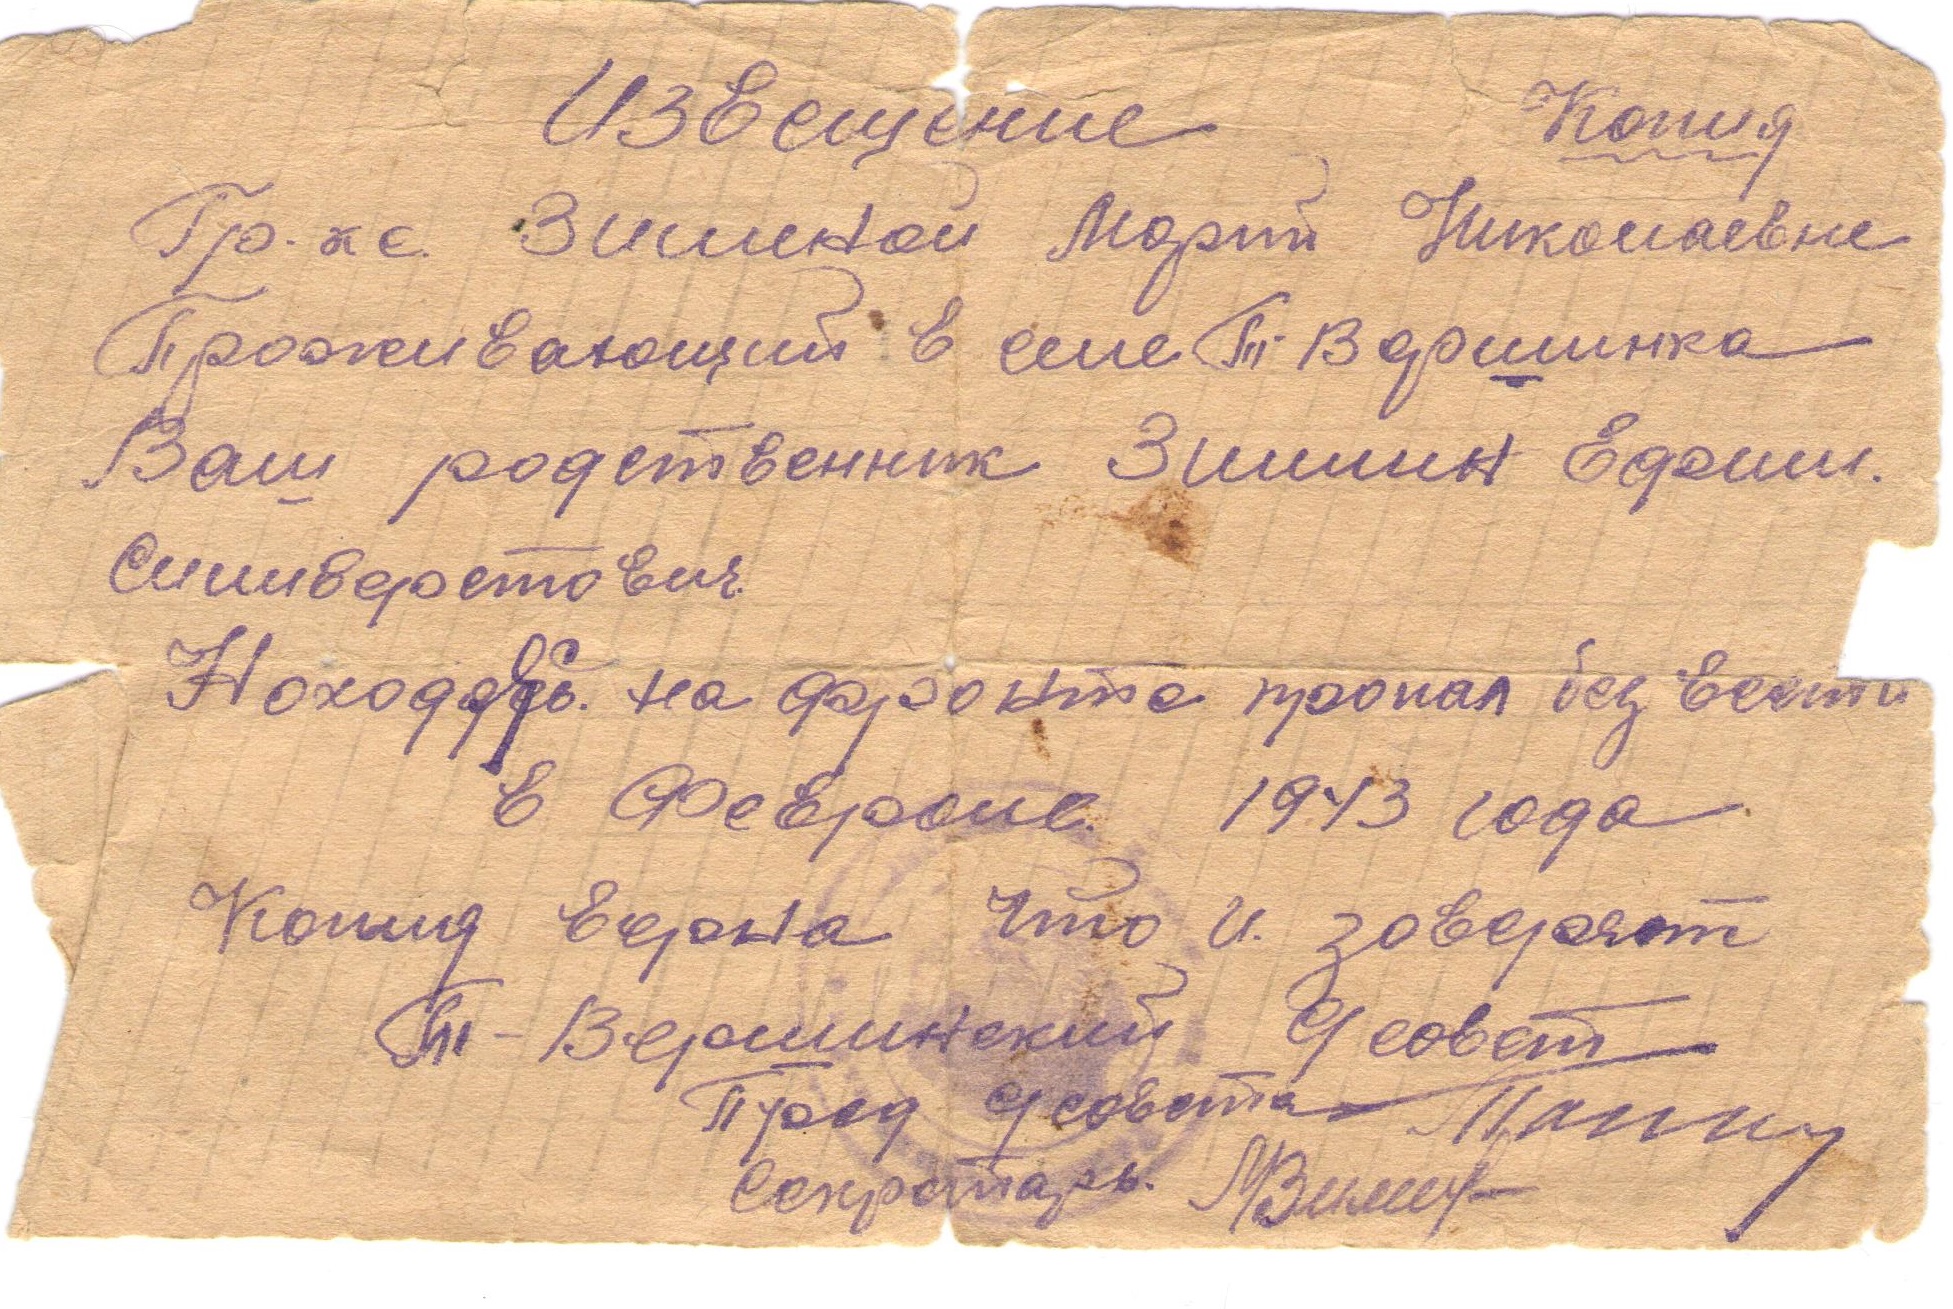 Извещение Копия
Гр-ке. Зиминой Марии Николаевне
Проживающий в селе Т-Вершинка
Ваш родственник Зимин Ефрим.
Силиверстович
Находясь. на фронте пропал без вести
в Феврале. 1943 года.
Копия верна что и. заверяет
Т-Вершинский С/совет
Пред с/совета
Секретарь.